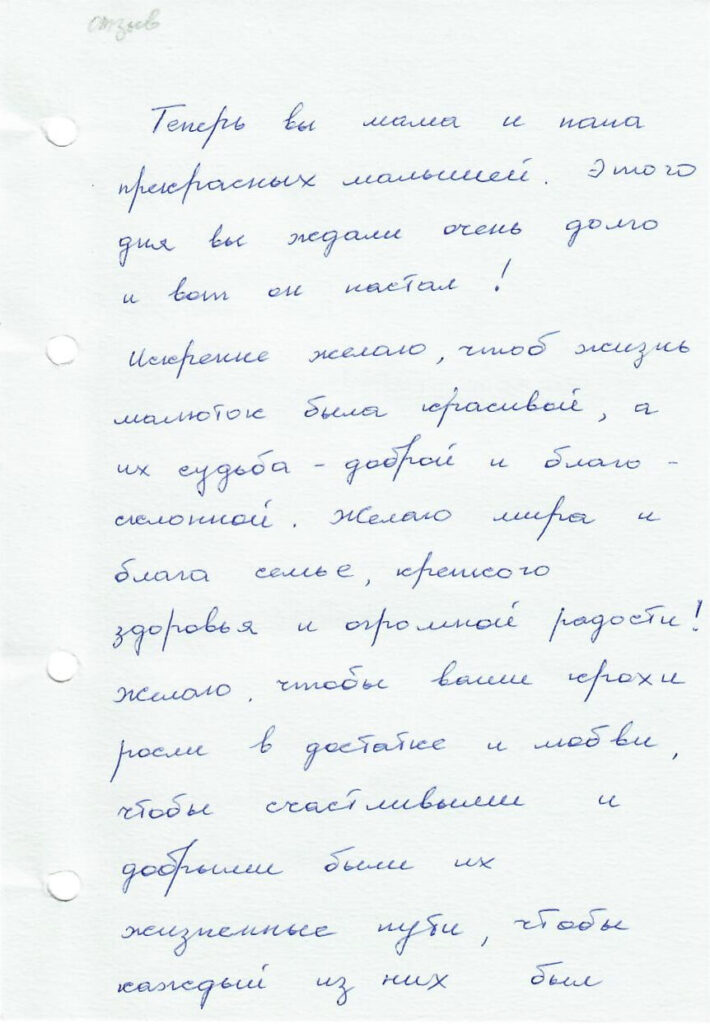 отзыв
Теперь вы мама и папа
прекрасных малышей. Этого
дня вы ждали очень долго
и вот он настал!
Искренне желаю, чтоб жизнь
малюток была красивой, а
их судьба - доброй и благо-
склонной. Желаю мира и
блага семье, крепкого
здоровья и огромной радости!
Желаю, чтобы ваши крохи
росли в достатке и любви,
чтобы счастливыми и
добрыми были их
жизненные пути, чтобы
каждый из них был